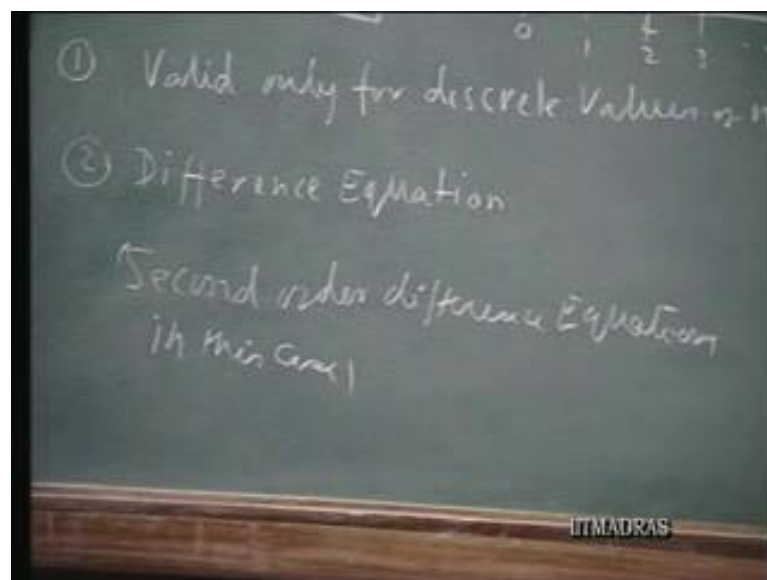 0 1 2 3
① Valid only for discrete Values of n
② Difference Equation
Second order difference Equation
in this Case
IITMADRAS